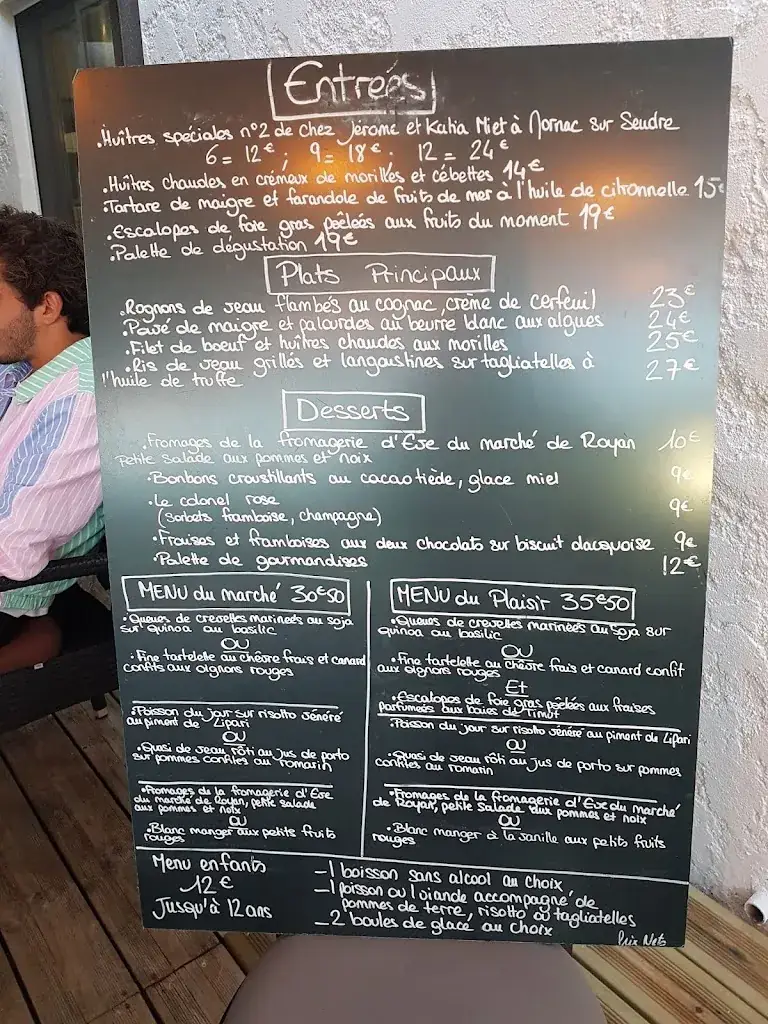 Entreés
.Huîtres spéciales n°2 de chez Jérome et Katia Miet à Mornac sur Seudre
6 = 12€ ; 9 = 18€ ; 12 = 24€
.Huîtres chaudes en crémeux de morilles et cébettes 14€
.Tartare de maigre et farandole de fruits de mer à l'huile de citronnelle 15€
.Escalopes de foie gras pöêleés aux fruits du moment 19€
.Palette de dégustation 19€
Plats Principaux
.Rognons de veau flambés au cognac, crème de cerfeuil 23€
.Pavé de maigre et palourdes au beurre blanc aux algues 24€
.Filet de boeuf et huîtres chaudes aux morilles 25€
.Ris de veau grillés et langoustines sur tagliatelles à 27€
l'huile de truffe
Desserts
.Fromages de la fromagerie d'Eve du marché de Royan 10€
Petite salade aux pommes et noix
.Bonbons croustillants au cacao tiède, glace miel 9€
.Le colonel rose 9€
(sorbets framboise, champagne)
.Fraises et framboises aux deux chocolats sur biscuit dacquoise 9€
.Palette de gourmandises 12€
MENU du marché 30€50
.Queues de crevettes marineés au soja
sur quinoa au basilic
OU
.Fine tartelette au chèvre frais et canard
confits aux oignons rouges
.Poisson du jour sur risotto vénéré
au piment de Lipari
OU
.Quasi de veau rôti au jus de porto
sur pommes confites au romarin
.Fromages de la fromagerie d'Eve
du marché de Royan, petite salade
aux pommes et noix
OU
.Blanc manger aux petits fruits
rouges
MENU du Plaisir 35€50
.Queues de crevettes marineés au soja sur
quinoa au basilic
OU
.Fine tartelette au chèvre frais et canard confit
aux oignons rouges
Et
.Escalopes de foie gras pöêleés aux fraises
parfumeés aux baies de Timut
.Poisson du jour sur risotto vénéré au piment de Lipari
OU
.Quasi de veau rôti au jus de porto sur pommes
confites au romarin
.Fromages de la fromagerie d'Eve du marché
de Royan, petite salade aux pommes et noix
OU
.Blanc manger à la vanille aux petits fruits
rouges
Menu enfants
12€
Jusqu'à 12 ans
_1 boisson sans alcool au choix
_1 poisson ou 1 viande accompagné de
pommes de terre, risotto ou tagliatelles
_2 boules de glace au choix
Prix Nets